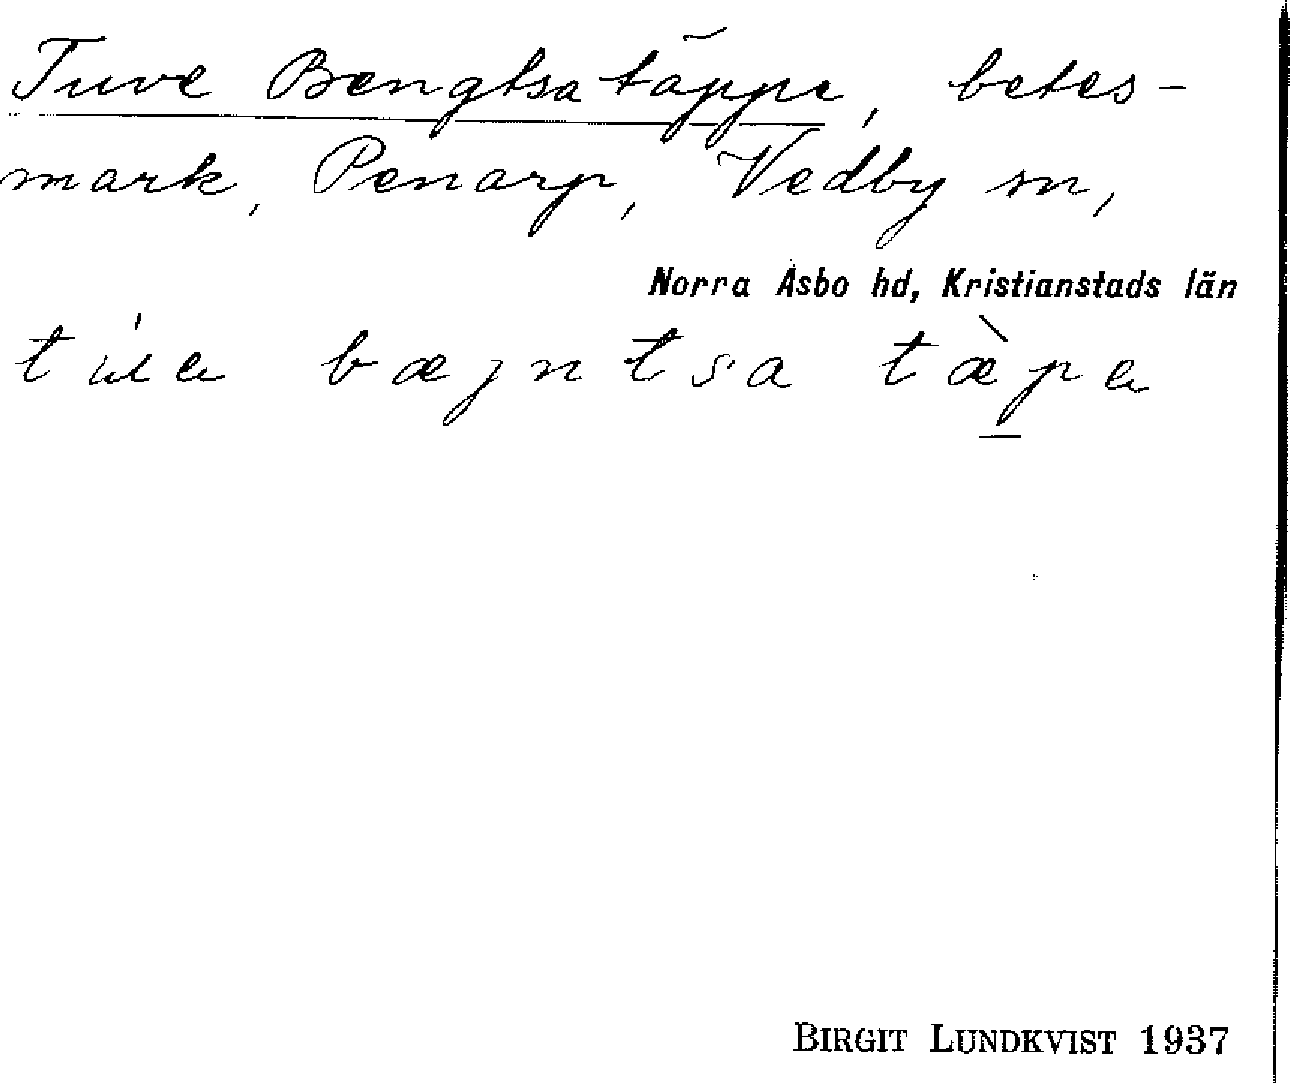 Tuve Bengtsatäppe, betes-
mark, Penarp, Vedby sn,
Norra Åsbo hd, Kristianstads län
bæjntsa tæ̀pa
BIRGIT LUNDKVIST 1937